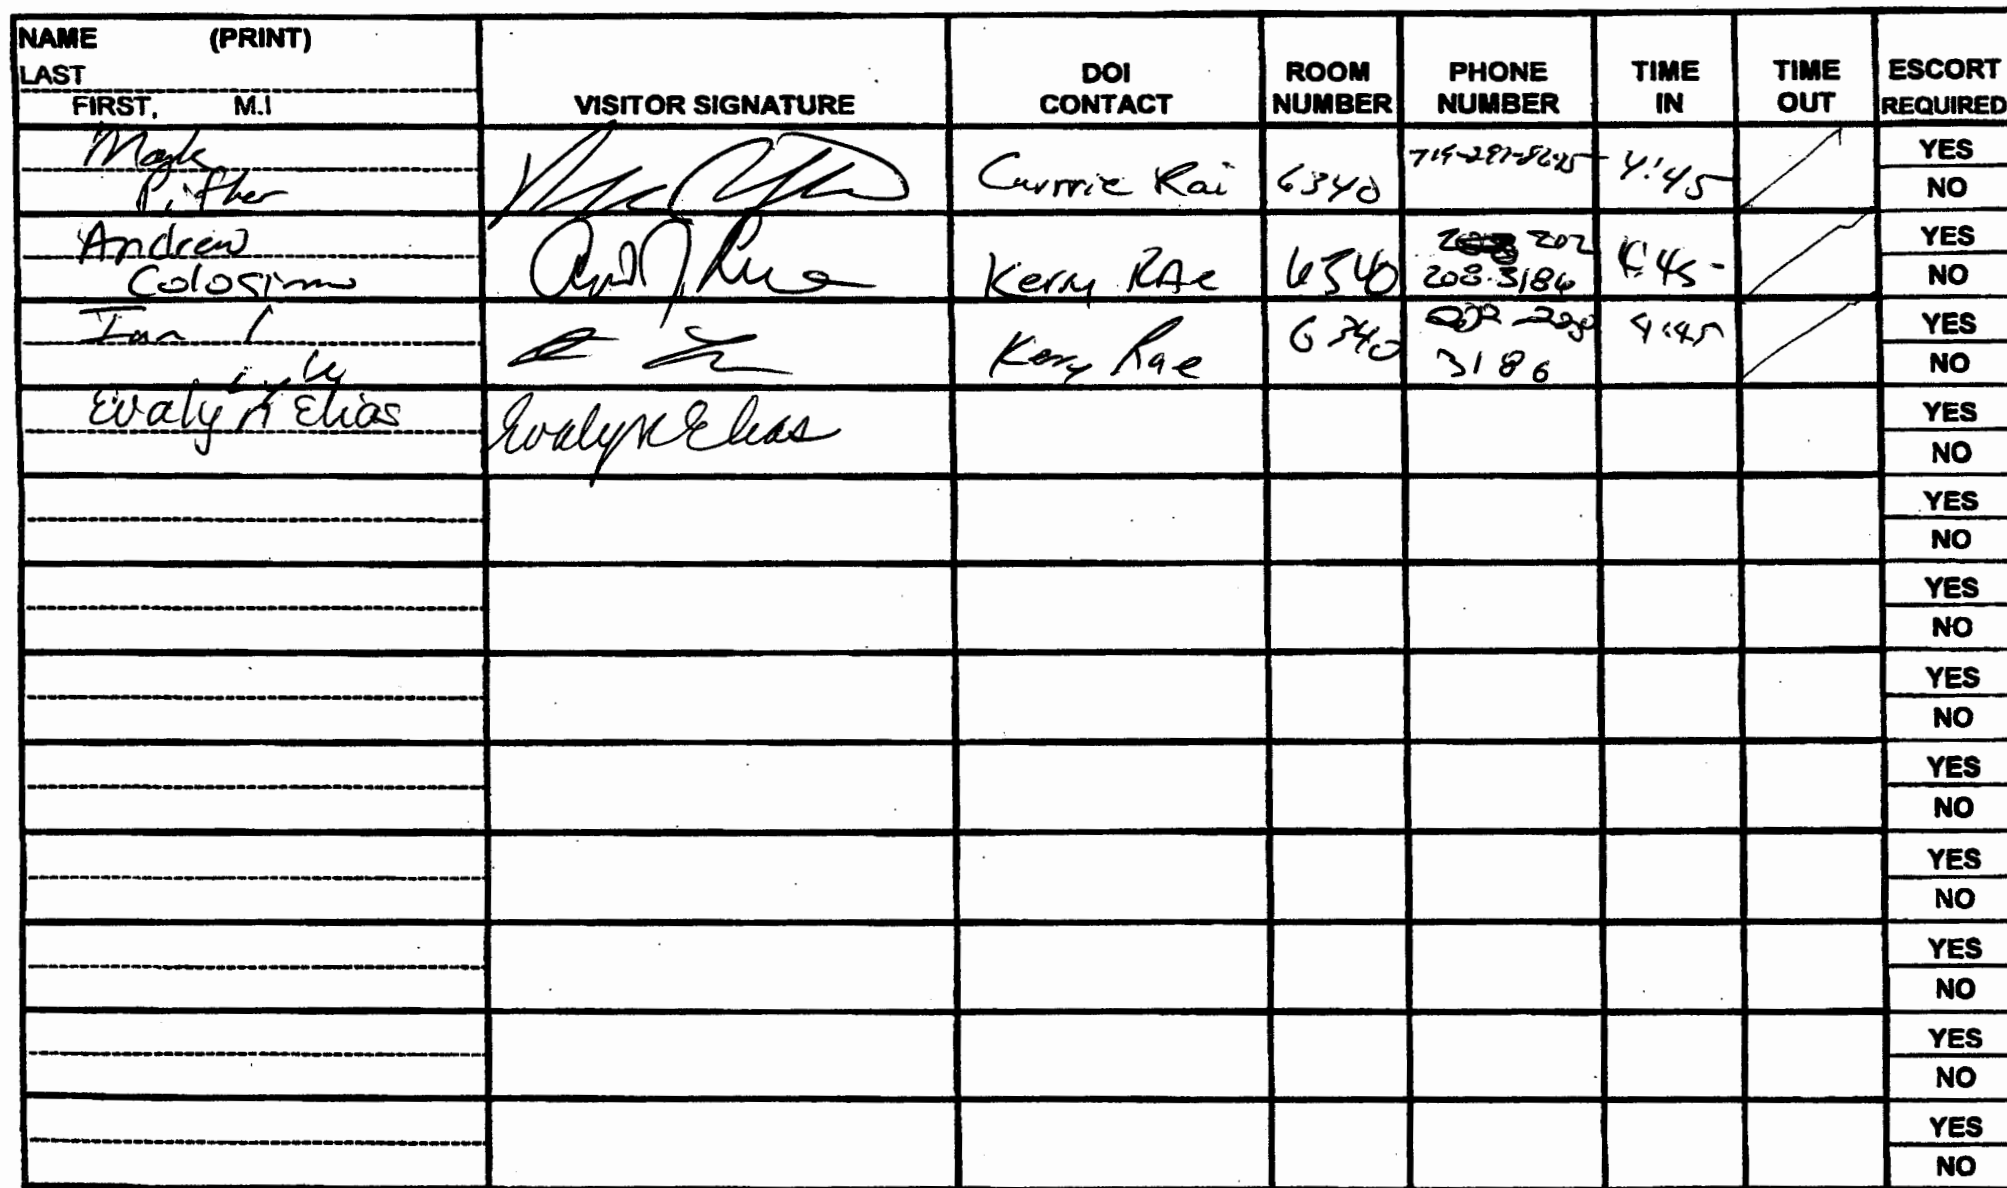 NAME (PRINT)
LAST
FIRST, M.I
VISITOR SIGNATURE
DOI CONTACT
ROOM NUMBER
PHONE NUMBER
TIME IN
TIME OUT
ESCORT REQUIRED
Mark Pifher Currie Rai 6340 4:45 YES NO
Andrew Colosimo Kerry RAe 6340 202 208-3186 4:45 YES NO
Ian Kerry Rae 6340 3186 4:45 YES NO
Evalyn Elias Evalyn Elias YES NO
YES
NO
YES
NO
YES
NO
YES
NO
YES
NO
YES
NO
YES
NO
YES
NO